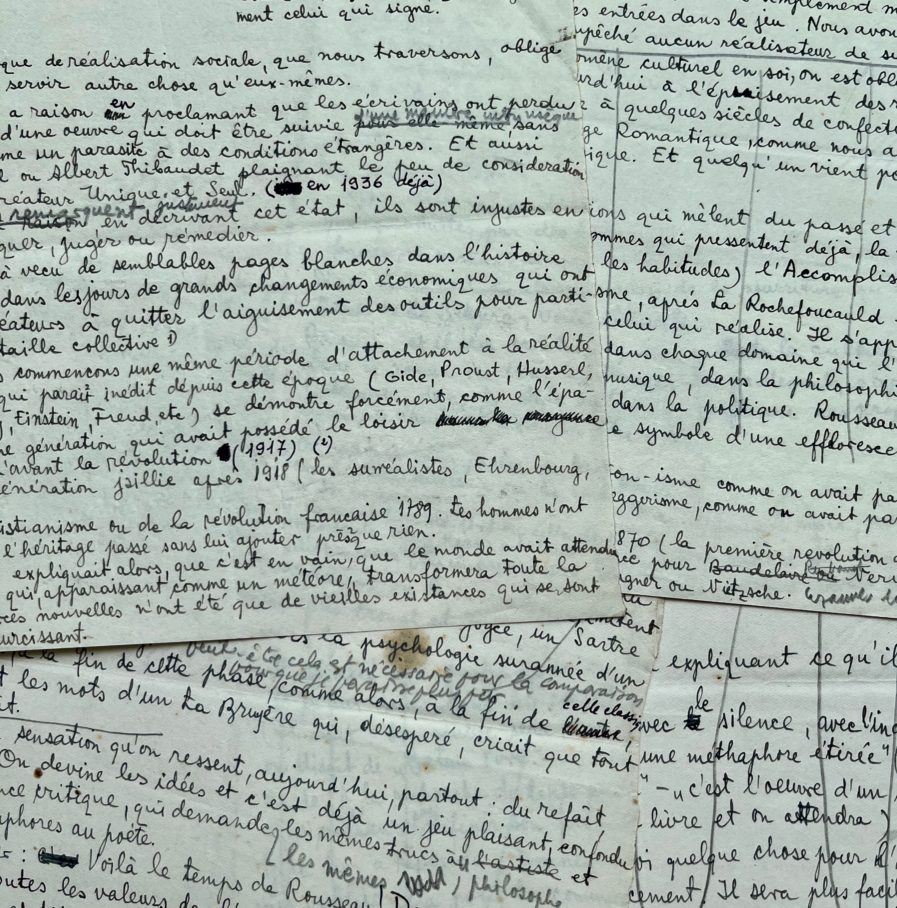 ment celui qui signe.
que de réalisation sociale, que nous traversons, oblige
servir autre chose qu'eux-mêmes.
a raison en proclamant que les écrivains ont perdu
d'une manière intrinsèque
d'une oeuvre qui doit être suivie pour elle même sans
me un parasite à des conditions étrangères. Et aussi
ou Albert Thibaudet plaignant le peu de considération
réateur Unique et Seul. (en 1936 déjà)
remarquent justement
raison en décrivant cet état, ils sont injustes en
quer, juger ou remédier.
à vécu de semblables pages blanches dans l'histoire
dans les jours de grands changements économiques qui ont
éateurs à quitter l'aiguisement des outils pour parti-
taille collective 1)
commencons une même période d'attachement à la réalité
qui parait inédit depuis cette époque (Gide, Proust, Husserl,
, Einstein, Freud, etc) se démontre forcément, comme l'épa-
ne génération qui avait possédé le loisir
d'avant la révolution (1917) (2)
énération jaillie après 1918 (les surréalistes, Ehrenbourg,
istianisme ou de la révolution francaise 1789. Les hommes n'ont
l'héritage passé sans lui ajouter presque rien.
expliquait alors, que c'est en vain, que le monde avait attendu
qui, apparaissant comme un météore, transformera toute la
rces nouvelles n'ont été que de vieilles existances qui se sont
urcissant.
es entrées dans le jeu. Nous avon
mpêché aucun réalisateur de su
omène culturel en soi, on est obl
urd'hui à l'épuisement des r
à quelques siècles de confect
ge Romantique, comme nous a
ique. Et quelqu'un vient po
ions qui mêlent du passé et
ommes qui pressentent déjà, la
les habitudes) l'Accomplis
sme, aprés La Rochefoucauld
celui qui réalise. Il s'app
dans chaque domaine qui l'
musique, dans la philosophi
dans la politique. Rousseau
e symbole d'une effloresce
on-isme comme on avait pa
aggerisme, comme on avait pa
870 (la première revolution
ée pour Baudelaire ou Ver
agner ou Nietzsche.
Joyce, un Sartre
la psychologie surannée d'un
Peut-être cela est nécessaire pour la comparaison
la fin de cette phase, comme alors, à la fin de celle classi
t les mots d'un La Bruyère qui, désesperé, criait que tout
it.
sensation qu'on ressent, aujourd'hui, partout: du refait
On devine les idées et c'est déjà un jeu plaisant, confondu
nce critique, qui demande les mêmes trucs à l'artiste et
aphores au poëte.
(les mêmes philosophe
ir: Voilà le temps de Rousseau!
outes les valeurs de l'
expliquant ce qu'il
vec le silence, avec l'in
une méthaphore étirée"
"- „c'est l'oeuvre d'un
livre et on attendra)
oi quelque chose pour l'
cement. Il sera plus facil